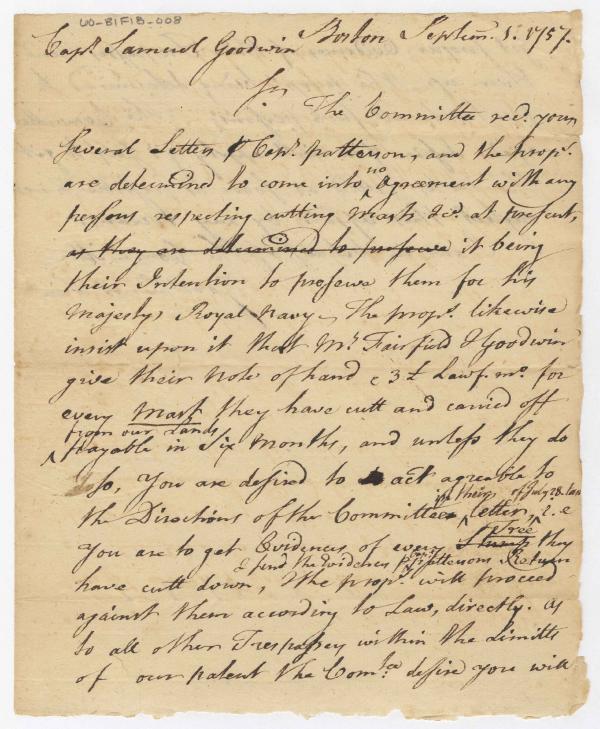 WO-B1F18-008
Boston Septemr. 1. 1757.
Capt. Samuel Goodwin
Sr.
The Committee recd. your
several Letters & Capt. Patterson, and the propr.
are determined to come into no Agreement with any
persons respecting cutting Masts &ca. at present,
as they are determined to preserve it being
their Intention to preserve them for his
Majestys Royal Navy. The propr. likewise
insist upon it that Mr. Fairfield & Goodwin
give their Note of hand 3£ Lawf. mo. for
every Mast they have cutt and carried off
from our Lands
payable in Six Months, and unless they do
so, You are desired to act agreable to
in their of July 28. last
the Directions of the Committee letter, i.e
Tree
You are to get Evidences of every they
& send the Evidences Patterson Return
have cutt down, & the propr. will proceed
against them according to Law, directly. As
to all other Trespasses within the Limitts
of our patent the Comtee desire you will